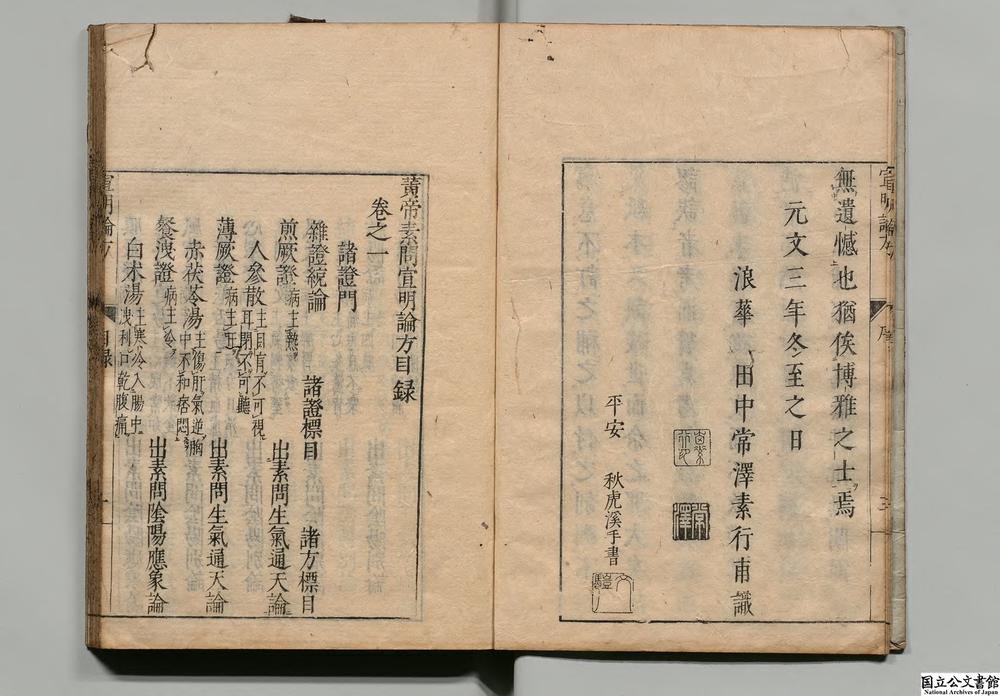 宣明論方
序
三
無遺憾也猶俟博雅之士焉
元文三年冬至之日
浪華 田中常澤素行甫識
常澤
平安 秋虎溪手書
黃帝素問宣明論方目錄
卷之一
諸證門
雜證統論 諸證標目 諸方標目
煎厥證 病主熱 出素問生氣通天論
人參散 主目有不可視耳閉不可聽
薄厥證 病主 出素問生氣通天論
赤茯苓湯 主傷肝氣逆胸中不和痞悶
飱洩證 病主冷 出素問陰陽應象論
白朮湯 主寒冷入腸中洩利口乾腹痛
宣明論方
目錄
一
国立公文書館
National Archives of Japan